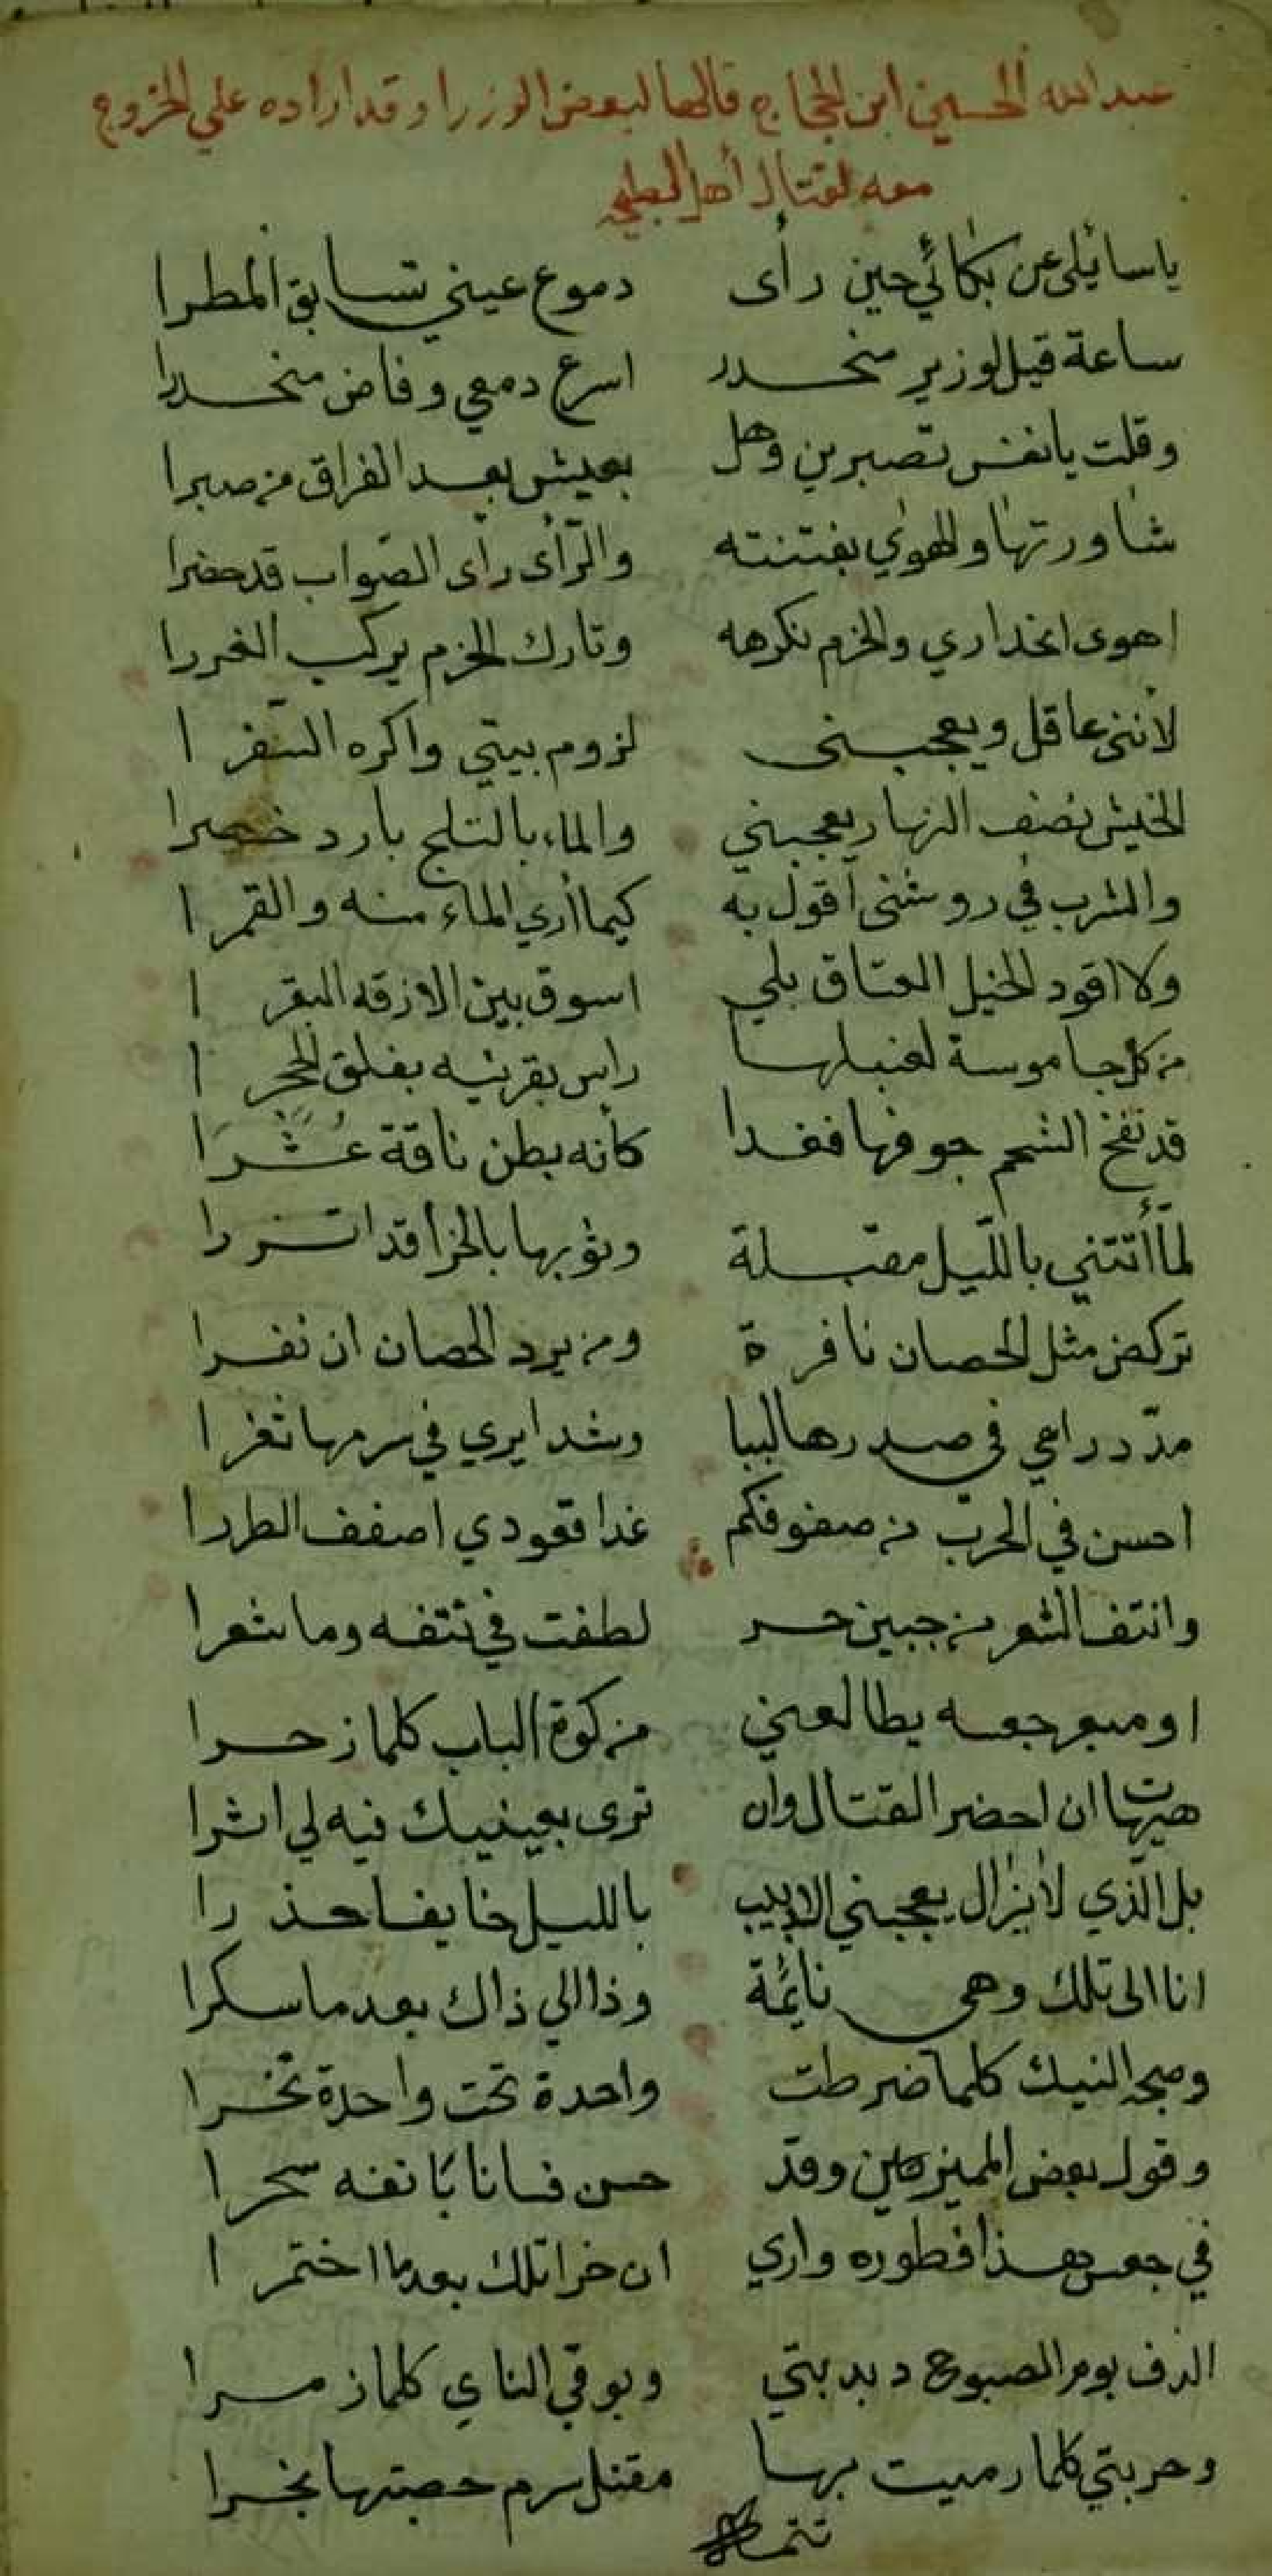 عبد الله الحسين ابن الحجاج قالها لبعض الوزرا وقد اراده علي الخروج
معه لقتال أهل البطيحه
ياسائلي عن بكائي حين رأى دموع عيني تسابق المطرا
ساعة قيل لوزير منحدر اسرع دمعي وفاض منحدرا
وقلت يا نفس تصبرين وهل يعيش بعد الفراق من صبرا
شاورتها والهوي يفتنته والرّأى رأى الصّواب قد حضرا
اهوى انحداري والحزم نكرهه وتارك الحزم يركب الغررا
لأنني عاقل ويعجبنى لزوم بيتي واكره السّفرا
الخيش نصف النهار يعجبني والماء بالثلج بارد خصرا
والشرب في روشنى اقول به كيما أري الماء منه والقمرا
ولا اقود الخيل العتاق بلي اسوق بين الازقه البقرا
من كل جاموسة لعنبلها راس بقرنيه يفلق الحجرا
قد نفخ الشحم جوفها فغدا كأنه بطن ناقة عُشَرَا
لمّا أتتني بالليل مقبلة وثوبها بالخرا قد اتزرا
تركض مثل الحصان نافرة ومن يرد الحصان ان نفرا
مدّ دراعي في صدرها لببا وشد ايري في سرمها ثغرا
احسن في الحرب من صفوفكم غدا قعودي اصفف الطررا
وانتف الشعر من جبين حر لطفت في نتفه وما شعرا
او مبعر جعسه يطالعني من كوة الباب كلما زحرا
هيهات ان احضر القتال وان ترى بعينيك فيه لي اثرا
بل الّذي لا يزال يعجبني الدبيب بالليل خايفا حذرا
انا الى تلك وهي نائمة وذا الي ذاك بعد ما سكرا
وضجه النيك كلما ضرطت واحدة تحت واحدة نخرا
وقول بعض المميزين وقد حس فسانا بانفه سحرا
في جعس هذا فطوره واري ان خرا تلك بعد ما اختمرا
الدف يوم الصبوح دبدبتي وبوقي الناي كلما زمرا
وحربتي كلما رميت بها مقتل سرم خضبتها بخرا
تمت